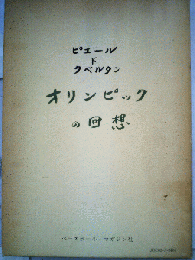 ピエール
ド
クベルタン
オリンピック
の回想
ベースボール・マガジン社